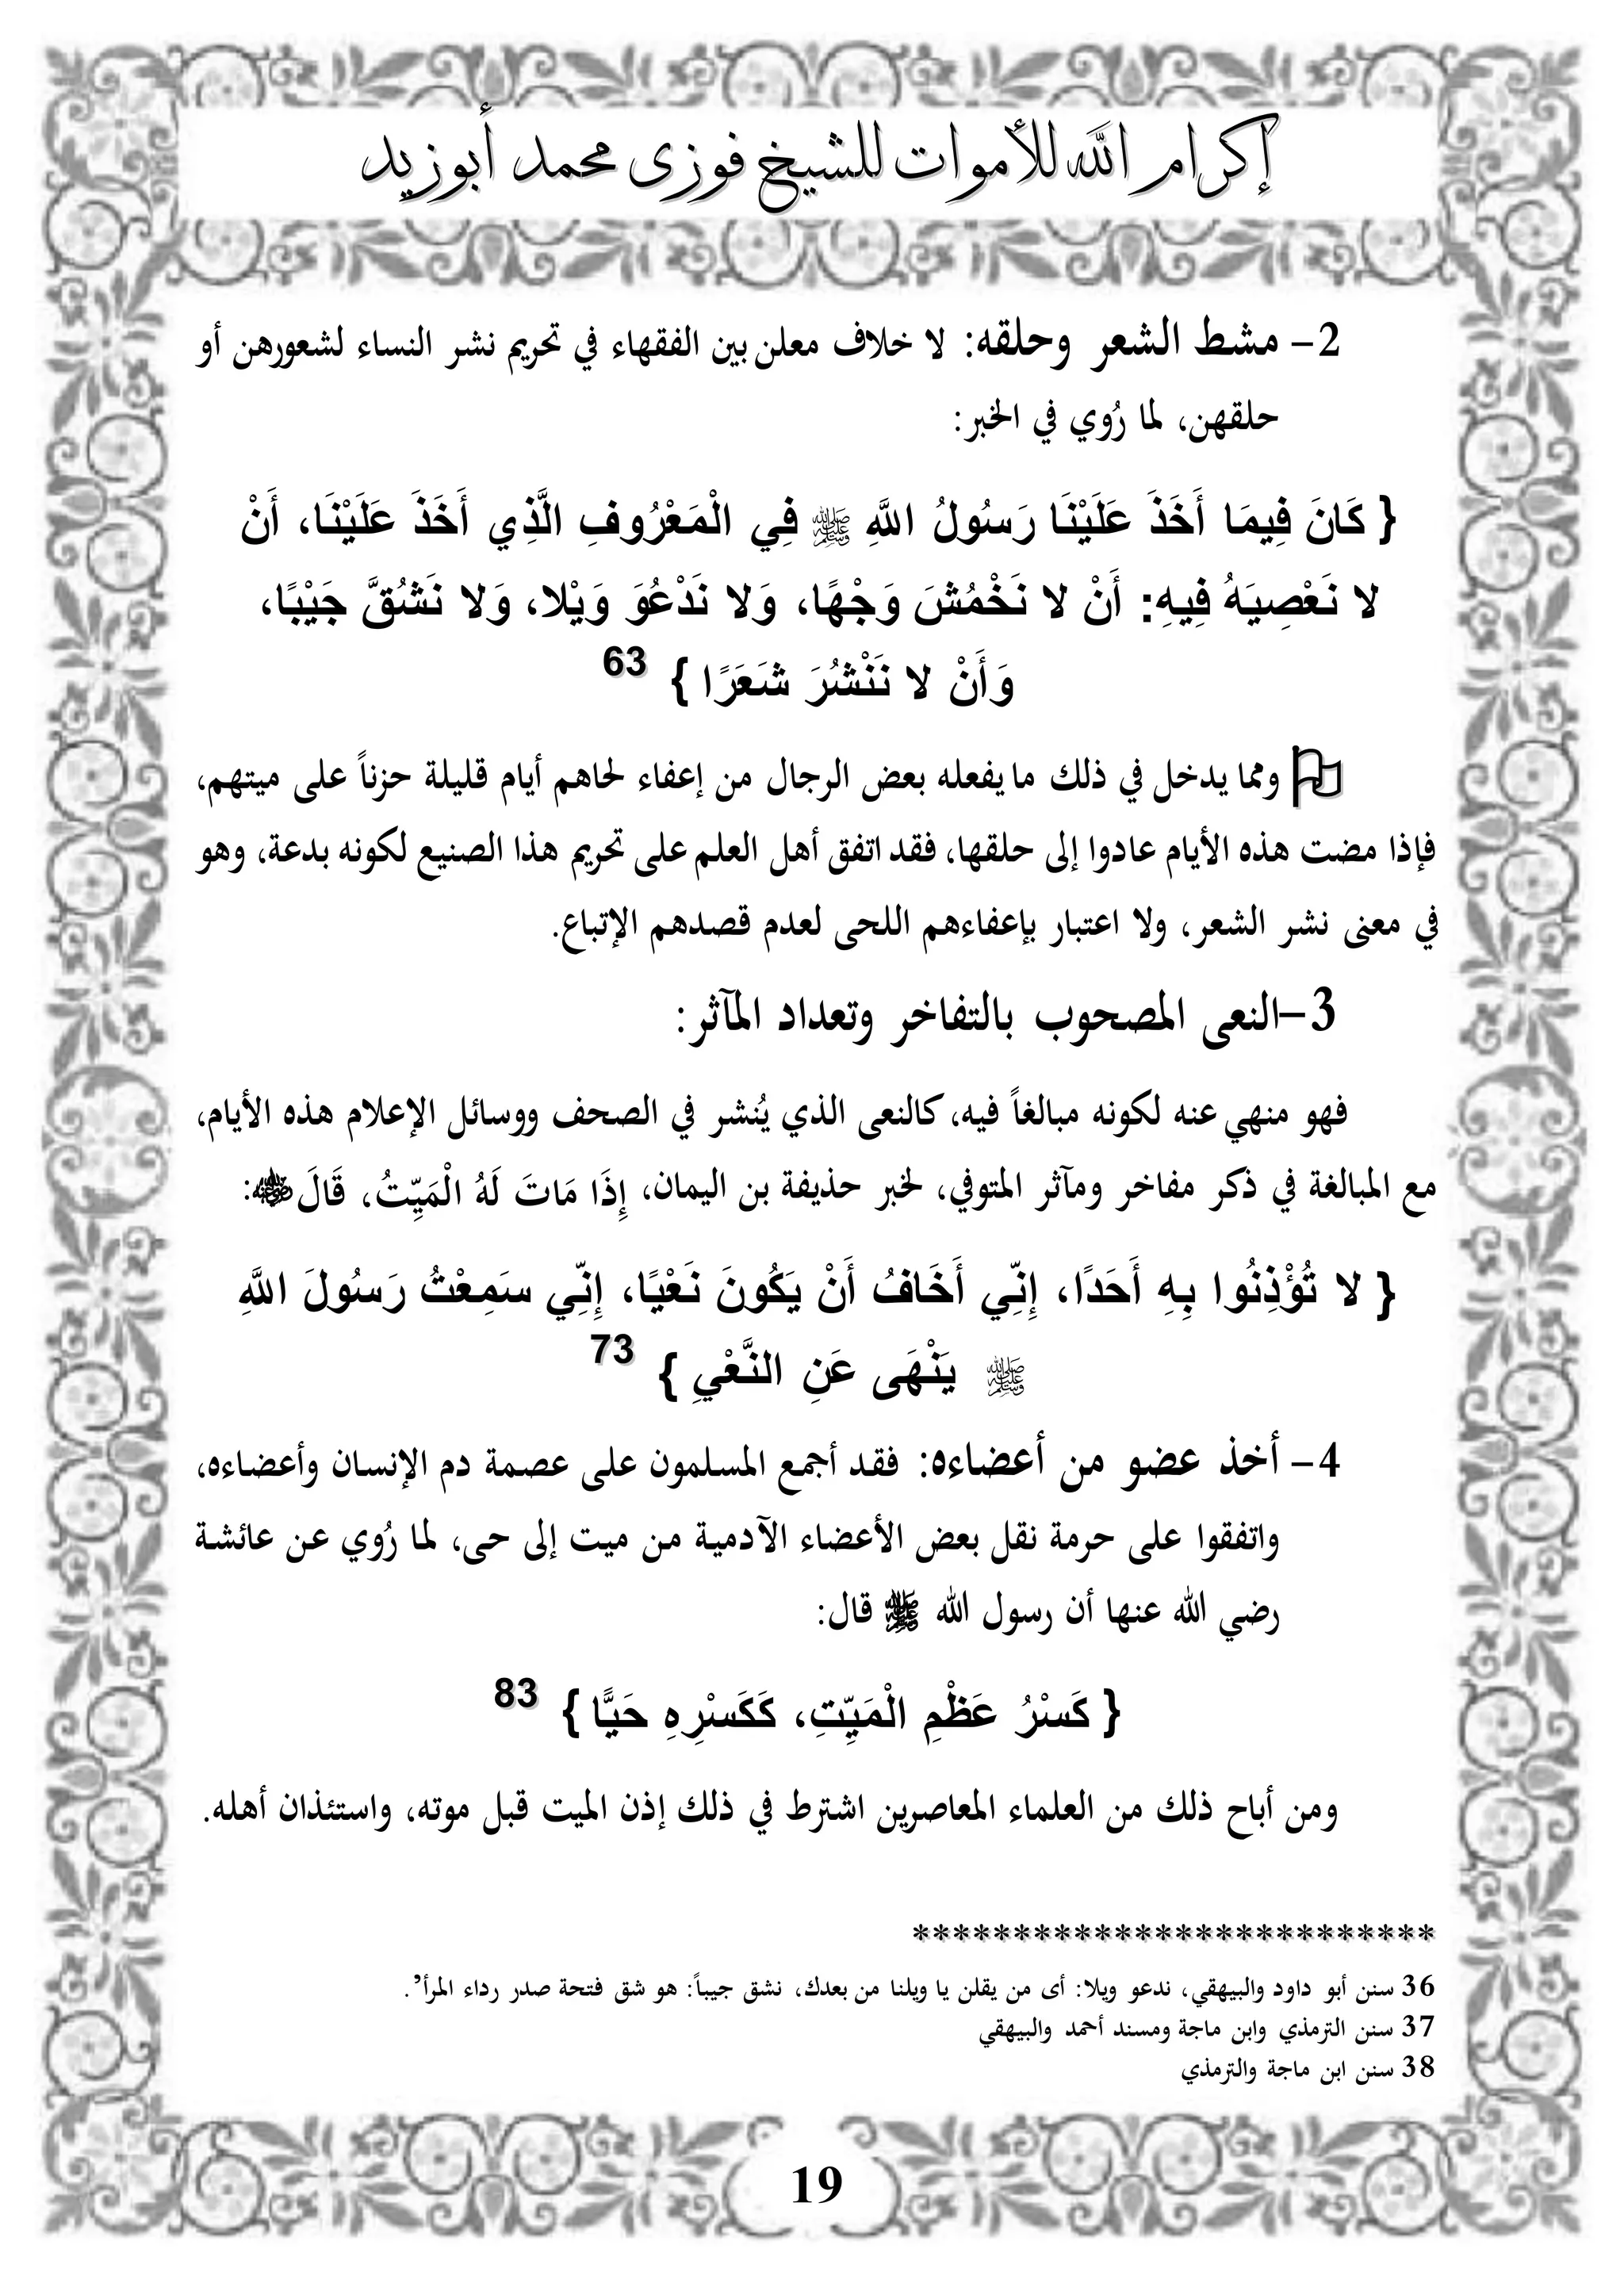 إكرام الله للأموات للشيخ فوزى محمد أبوزيد
2- مشط الشعر وحلقه: لا خلاف معلن بين الفقهاء في تحريم نشر النساء لشعورهن أو
حلقهن، لما رُوي في الخبر:
{ كَانَ فِيمَا أَخَذَ عَلَيْنَا رَسُولُ اللَّهِ ﷺ فِي الْمَعْرُوفِ الَّذِي أَخَذَ عَلَيْنَا، أَنْ
لا نَعْصِيَهُ فِيهِ: أَنْ لا نَخْمُشَ وَجْهًا، وَلا نَدْعُوَ وَيْلا، وَلا نَشُقَّ جَيْبًا،
وَأَنْ لا نَنْشُرَ شَعَرًا } 63
ومما يدخل في ذلك ما يفعله بعض الرجال من إعفاء لحاهم أيام قليلة حزناً على ميتهم،
فإذا مضت هذه الأيام عادوا إلى حلقها، فقد اتفق أهل العلم على تحريم هذا الصنيع لكونه بدعة، وهو
في معنى نشر الشعر، ولا اعتبار بإعفاءهم اللحى لعدم قصدهم الإتباع.
3-النعى المصحوب بالتفاخر وتعداد المآثر:
فهو منهي عنه لكونه مبالغاً فيه، كالنعى الذي يُنشر في الصحف ووسائل الإعلام هذه الأيام،
مع المبالغة في ذكر مفاخر ومآثر المتوفي، لخبر حذيفة بن اليمان، إِذَا مَاتَ لَهُ الْمَيِّتُ، قَالَ :
{ لا تُؤْذِنُوا بِهِ أَحَدًا، إِنِّي أَخَافُ أَنْ يَكُونَ نَعْيًا، إِنِّي سَمِعْتُ رَسُولَ اللَّهِ
ﷺ يَنْهَى عَنِ النَّعْيِ } 73
4- أخذ عضو من أعضاءه: فقد أجمع المسلمون على عصمة دم الإنسان وأعضاءه،
واتفقوا على حرمة نقل بعض الأعضاء الآدمية من ميت إلى حى، لما رُوي عن عائشة
رضي الله عنها أن رسول الله ﷺ قال:
{ كَسْرُ عَظْمِ الْمَيِّتِ، كَكَسْرِهِ حَيًّا } 83
ومن أباح ذلك من العلماء المعاصرين اشترط في ذلك إذن الميت قبل موته، واستئذان أهله.
**************************
36 سنن أبو داود والبيهقي، ندعو ويلا: أى من يقلن يا ويلنا من بعدك، نشق جيباً: هو شق فتحة صدر رداء المرأ'.
37 سنن الترمذي وابن ماجة ومسند أحمد والبيهقي
38 سنن ابن ماجة والترمذي
19